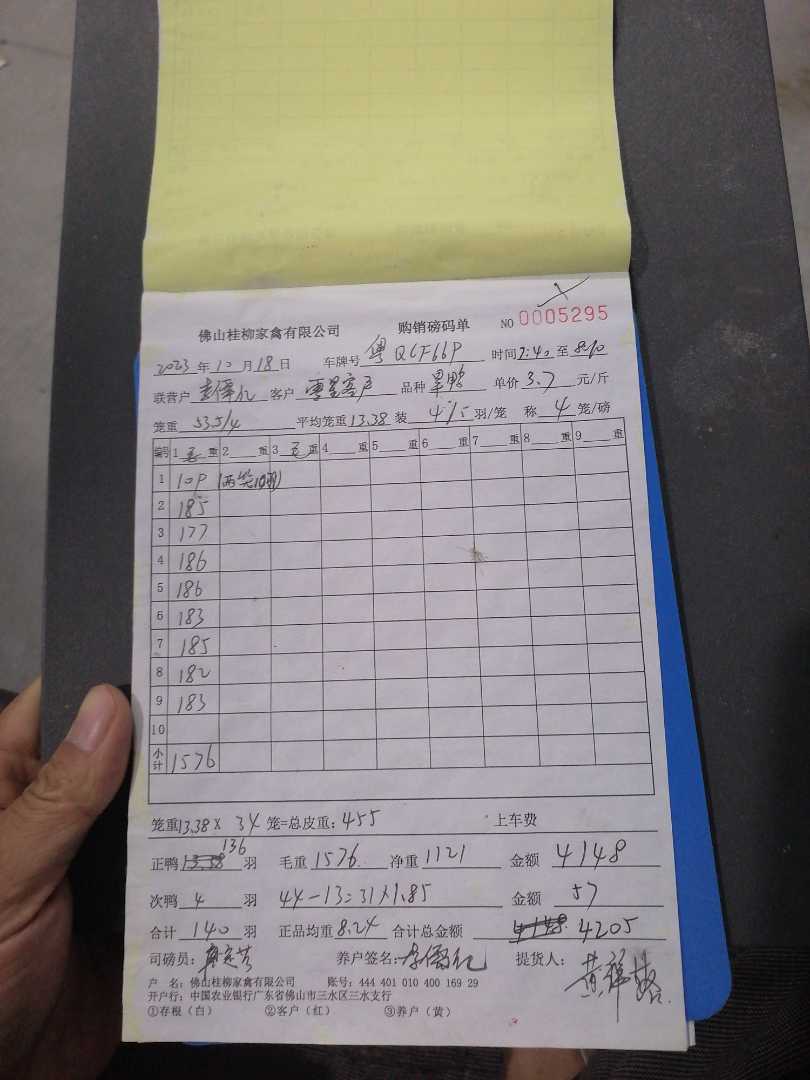 佛山桂柳家禽有限公司 购销磅码单 NO 0005295
2023 年 10 月 18 日 车牌号 粤QCF66P 时间 7:40 至 8:10
联营户 客户 零星客户 品种 单价 3.7 元/斤
笼重 53.5/4 平均笼重 13.38 装 4%5 羽/笼 称 4 笼/磅
编号 1 毛 重 2 重 3 毛 重 4 重 5 重 6 重 7 重 8 重 9 重
1 10P (两笼10羽)
2 185
3 177
4 186
5 186
6 183
7 185
8 182
9 183
10
小计 1576
笼重 13.38 X 34 笼=总皮重: 455 上车费
正鸭 136 羽 毛重 1576 净重 1121 金额 4148
次鸭 4 羽 44-13=31×1.85 金额 57
合计 140 羽 正品均重 8.24 合计总金额 4148 4205
司磅员: 养户签名: 提货人:
户 名: 佛山桂柳家禽有限公司 账号: 444 401 010 400 169 29
开户行: 中国农业银行广东省佛山市三水区三水支行
①存根(白) ②客户(红) ③养户(黄)